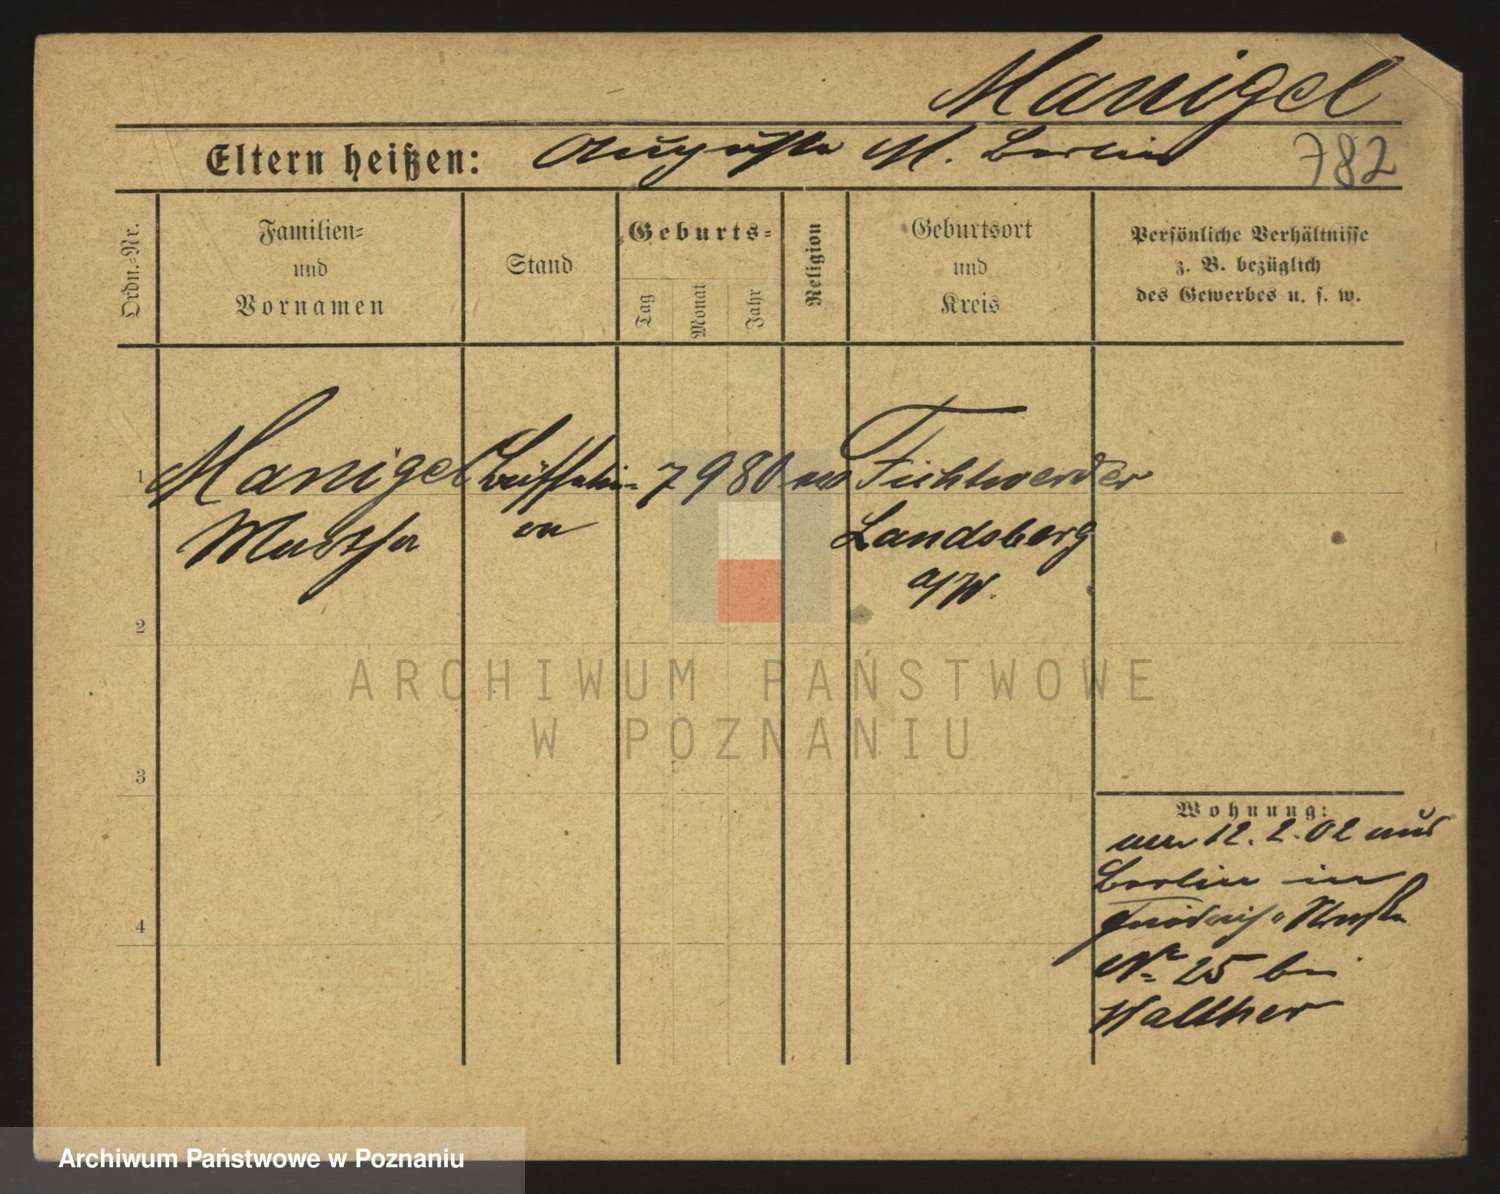 Manigel
Eltern heißen: Auguste M. Berlin
782
Ordn.-Nr.
Familien-
und
Vornamen
Stand
Geburts-
Tag
Monat
Jahr
Religion
Geburtsort
und
Kreis
Persönliche Verhältnisse
z. B. bezüglich
des Gewerbes u. s. w.
1
Manigel
Martha
7 9 80
Landsberg
a/W.
2
ARCHIWUM PAŃSTWOWE
W POZNANIU
3
Wohnung:
12. 2. 02 aus
Berlin in
Friedrich-Straße
No 25 bei
Walther
4
Archiwum Państwowe w Poznaniu